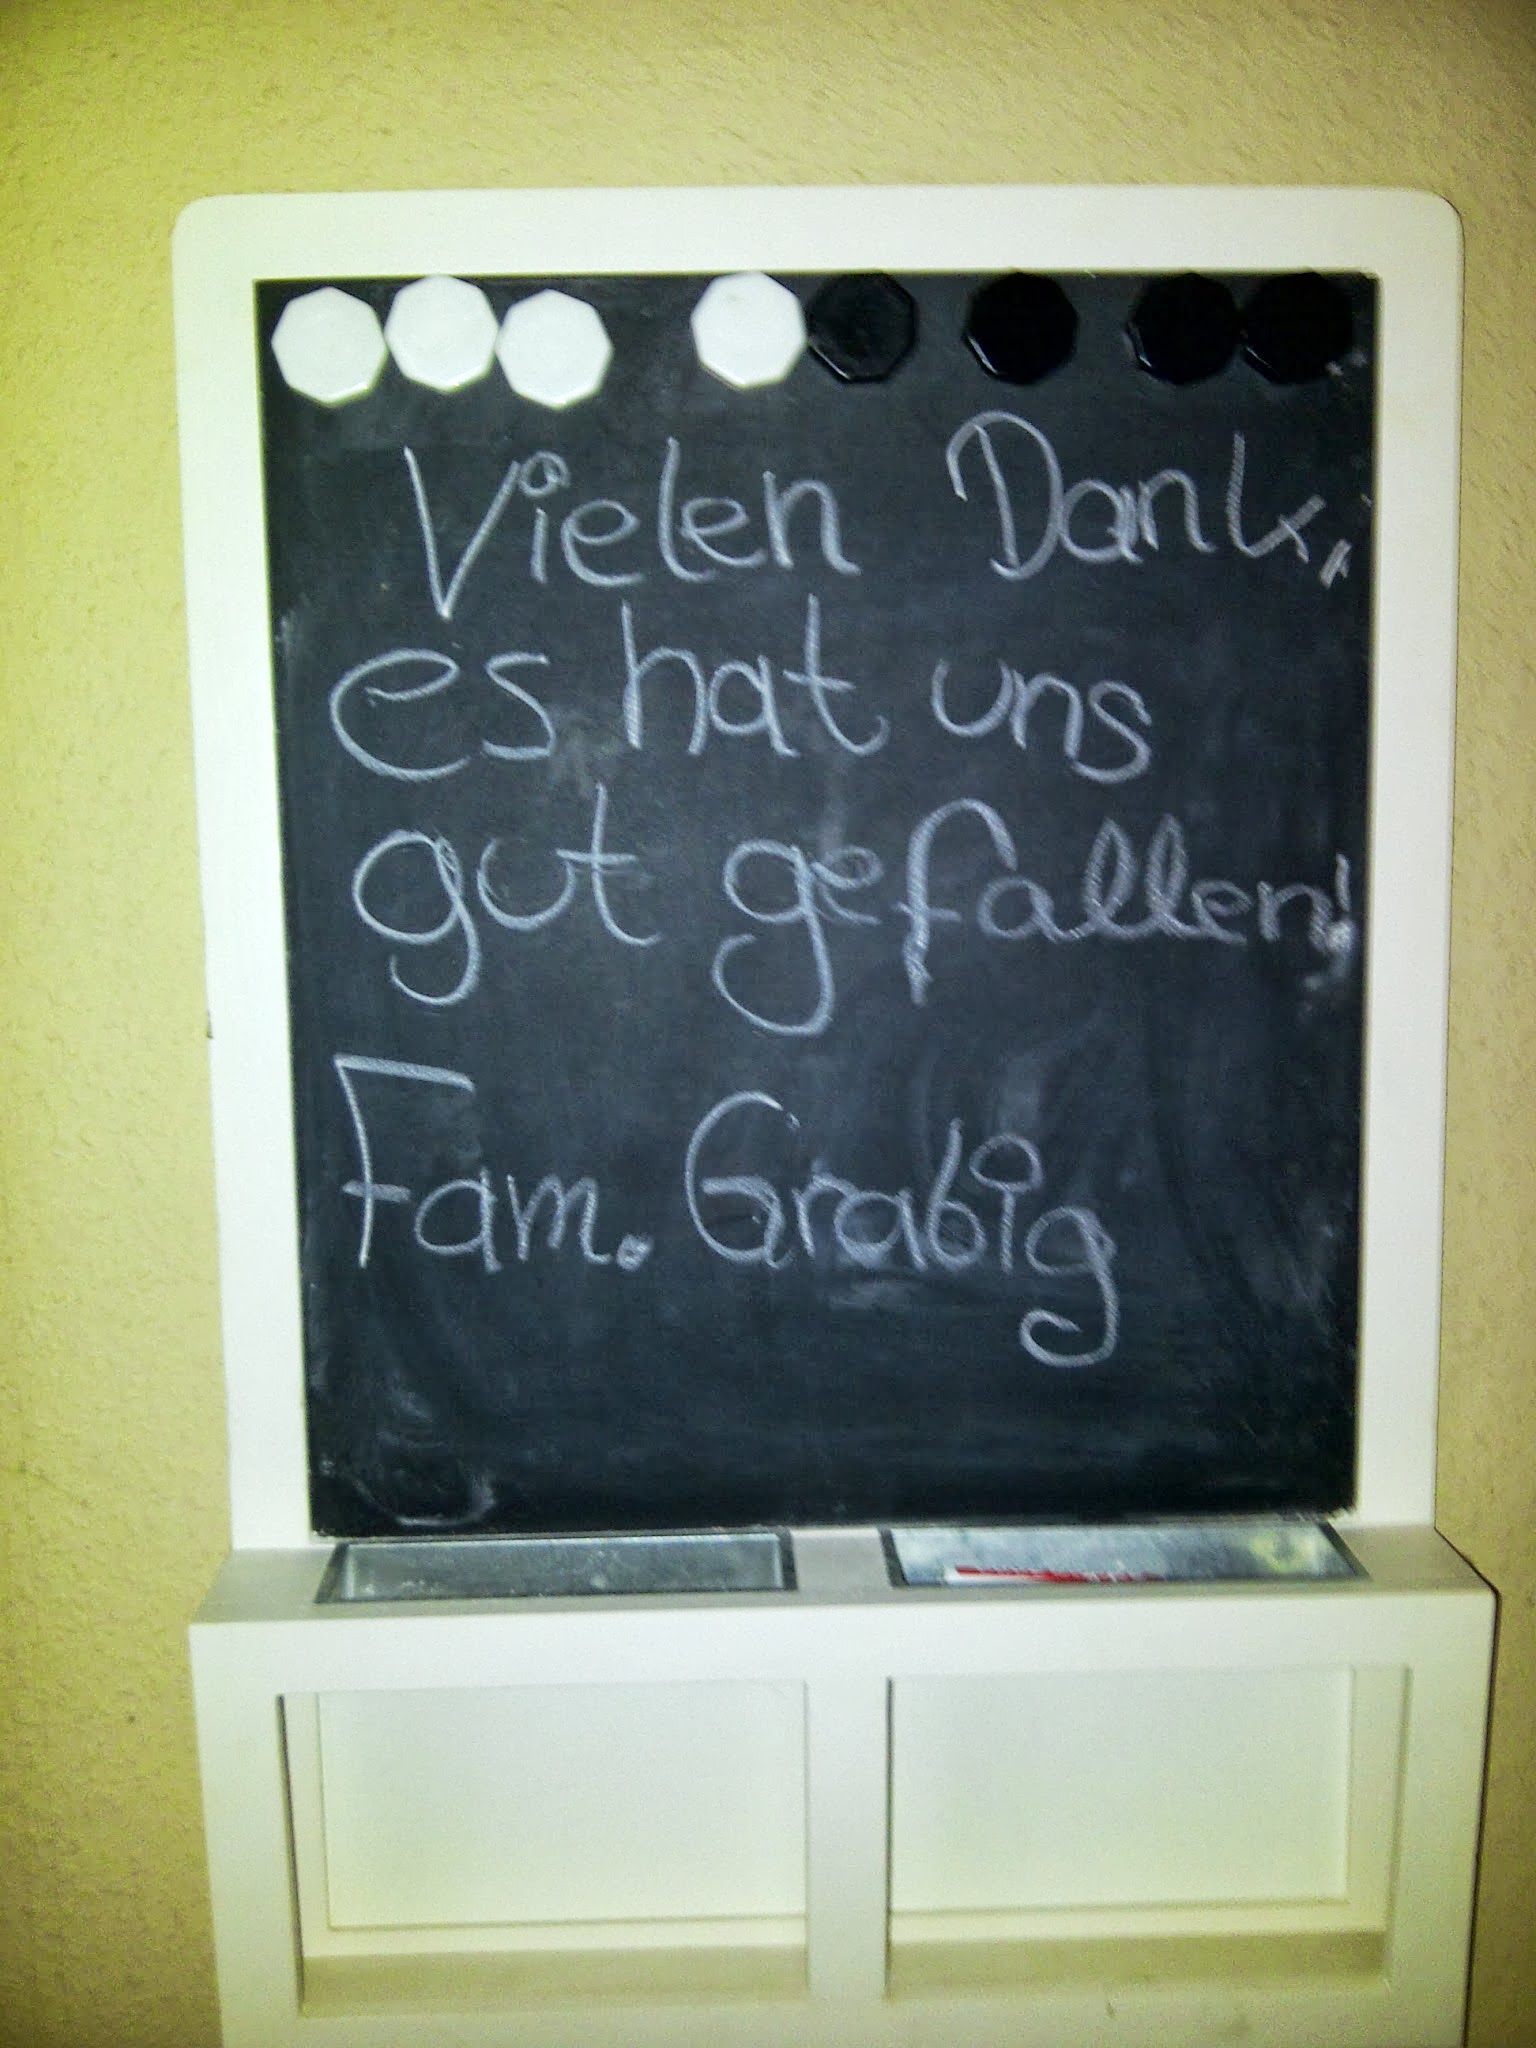 Vielen Dank,
es hat uns
gut gefallen!
Fam. Grabig